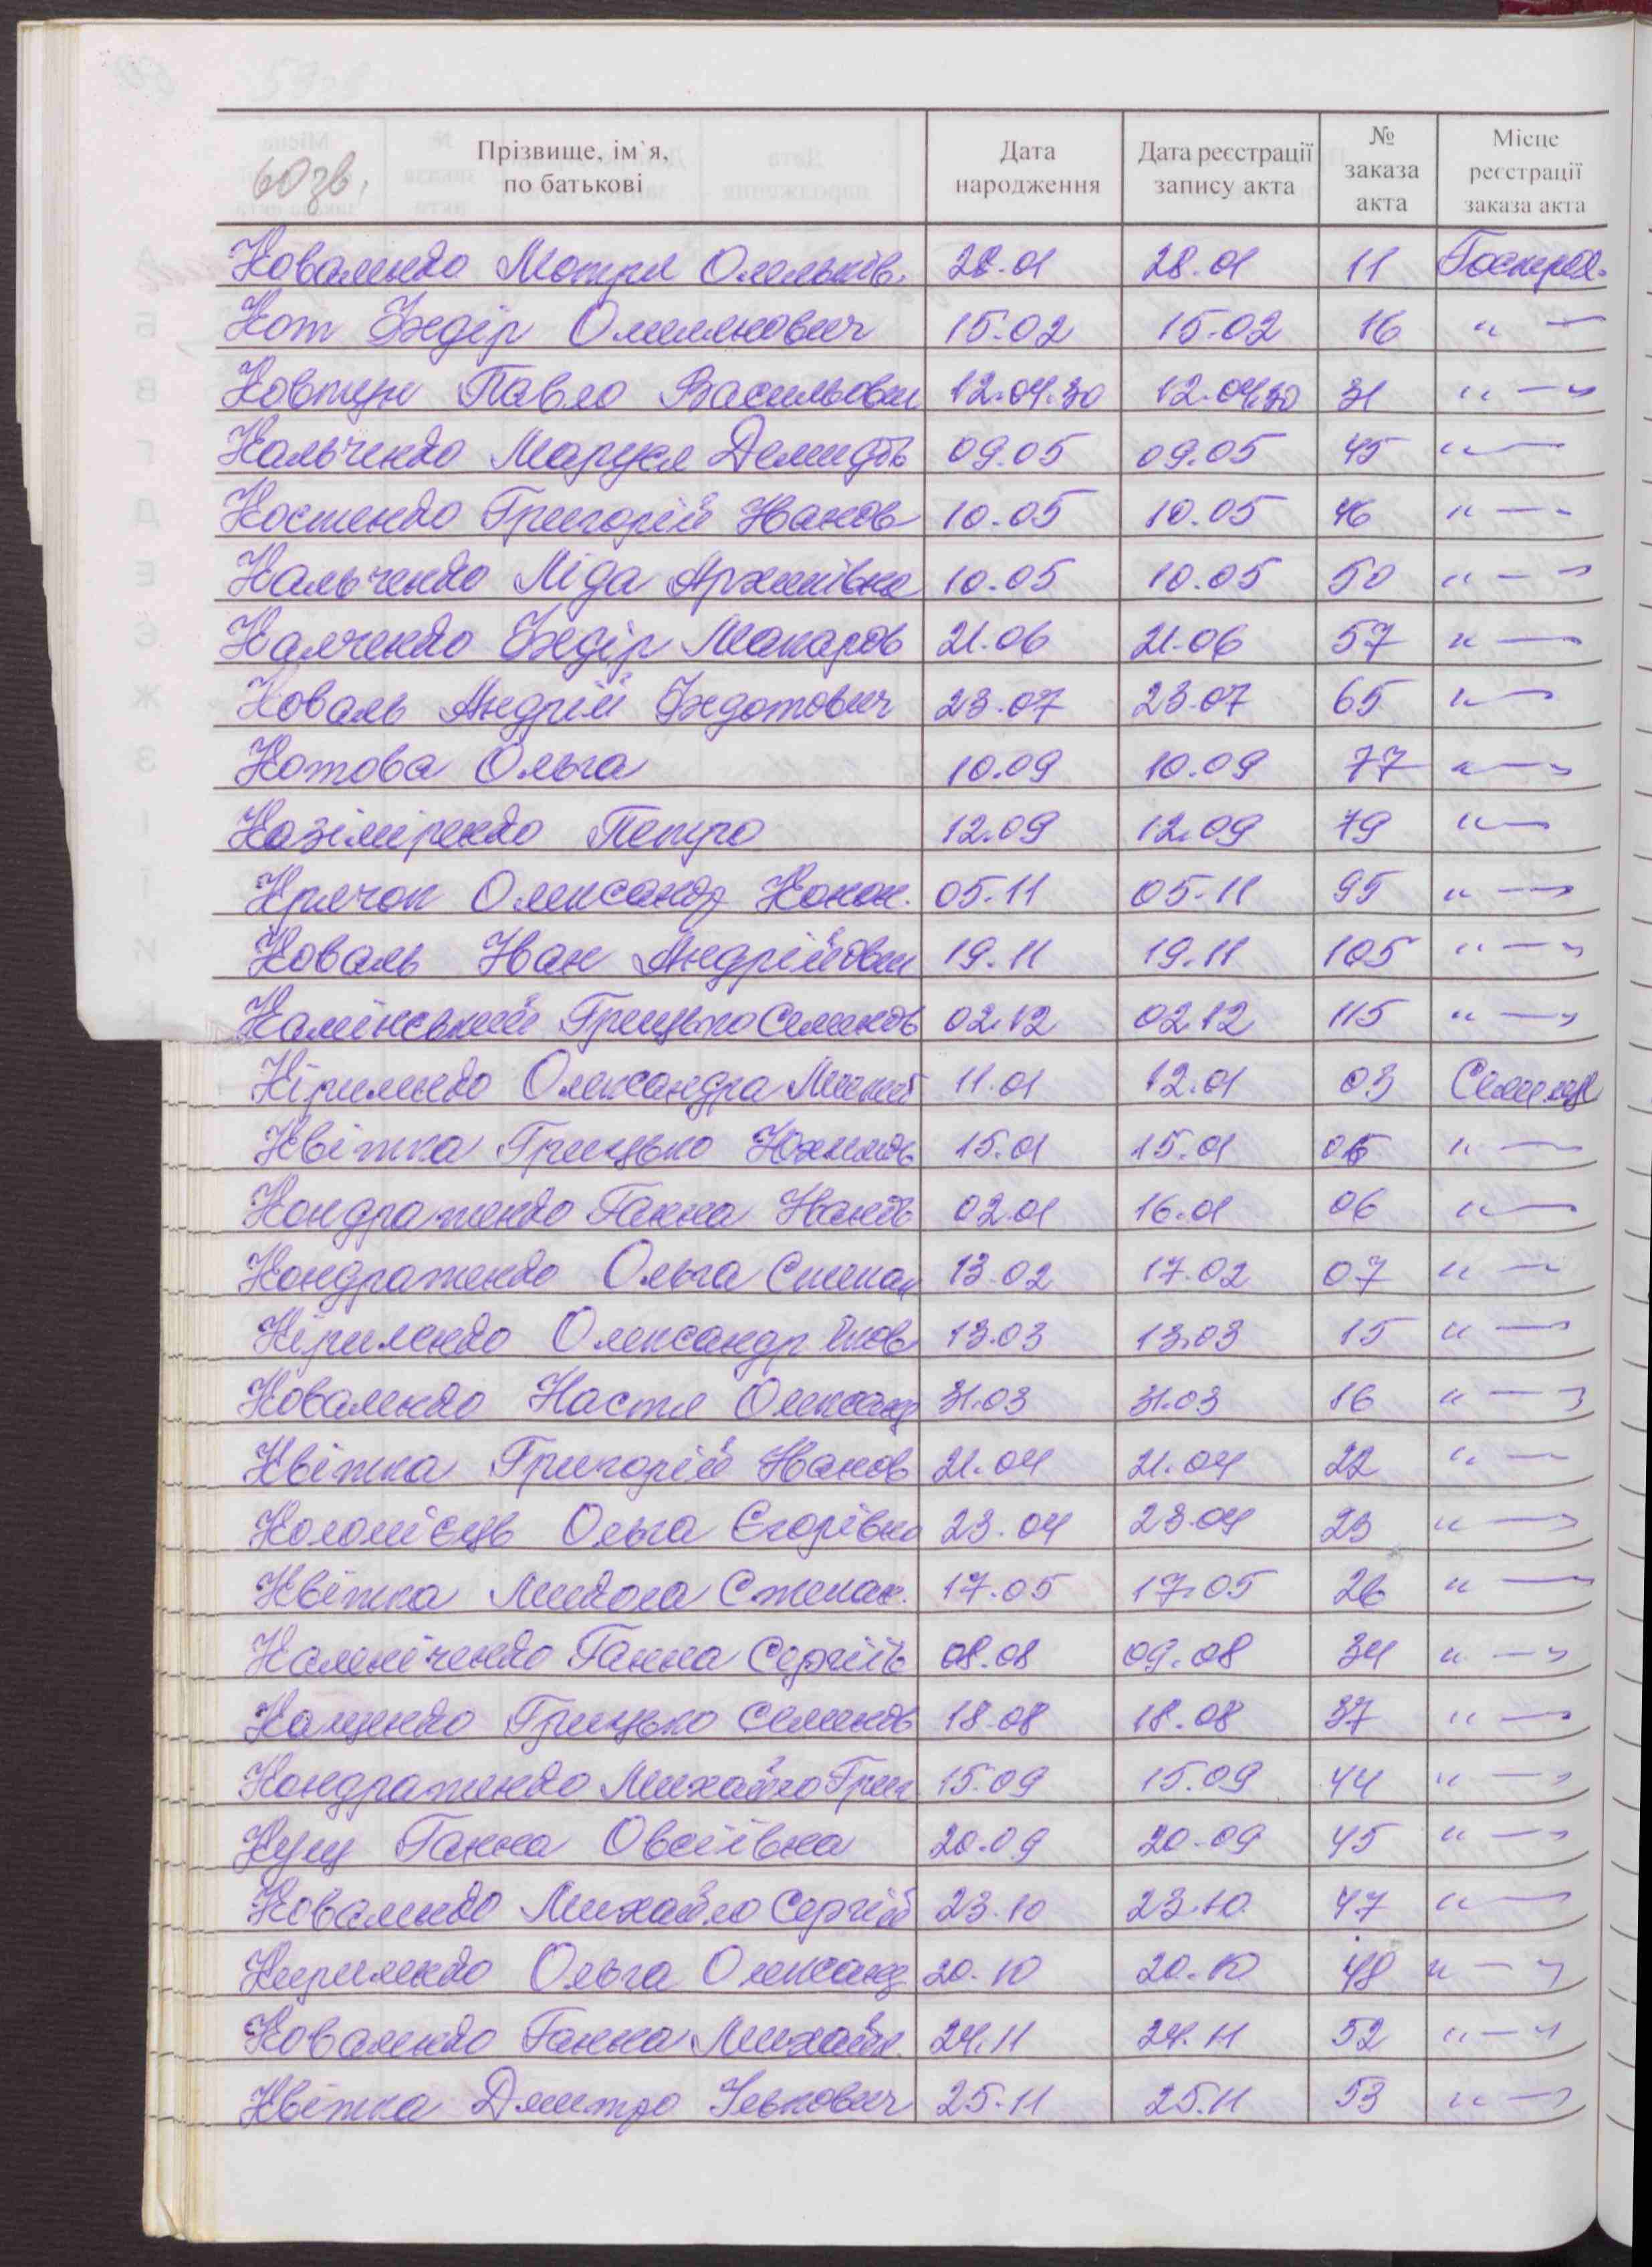 60 зв.
Прізвище, ім`я, по батькові | Дата народження | Дата реєстрації запису акта | № заказа акта | Місце реєстрації заказа акта
Коваленко Мотря Олельків. 28.01 28.01 11
Кот Федір Омелянович 15.02 15.02 16 " —
Ковтун Павло Васильович 12.04.30 12.04.30 31 " — "
Кальченко Маруся Демидів 09.05 09.05 45 " —
Костенко Григорій Іванов 10.05 10.05 46 " — "
Кальченко Ліда Архипівна 10.05 10.05 50 " — "
Калченко Федір Макаров 21.06 21.06 57 " —
Коваль Андрій Федотович 23.07 23.07 65 " —
Котова Ольга 10.09 10.09 77 " — "
Казіміренко Петро 12.09 12.09 79 " —
Крячок Олександр Конон. 05.11 05.11 95 " — "
Коваль Іван Андрійович 19.11 19.11 105 " — "
Камінський Грицько Семенов 02.12 02.12 115 " — "
Кіриленко Олександра 11.01 12.01 03
Квітка Грицько Юхимов 15.01 15.01 05 " —
Кондратенко Ганна Іванів 02.01 16.01 06 " —
Кондратенко Ольга Степан 13.02 17.02 07 " —
Кіриленко Олександр Яков 13.03 13.03 15 " — "
Коваленко Настя Олександ 31.03 31.03 16 " — "
Квітка Григорій Іванов 21.04 21.04 22 " —
Коломієць Ольга Єгорівна 23.04 23.04 23 " — "
Квітка Микола Степан. 17.05 17.05 26 " —
Калініченко Ганна Сергіїв 08.08 09.08 34 " — "
Кащенко Грицько Семенов 18.08 18.08 37 " — "
Кондратенко Михайло Григ 15.09 15.09 44 " — "
Кущ Ганна Овсіївна 20.09 20.09 45 " — "
Коваленко Михайло Сергій 23.10 23.10 47 " —
Кириленко Ольга Олександ 20.10 20.10 48 " — "
Коваленко Ганна Михайл. 24.11 24.11 52 " — "
Квітка Дмитро Ількович 25.11 25.11 53 " — "